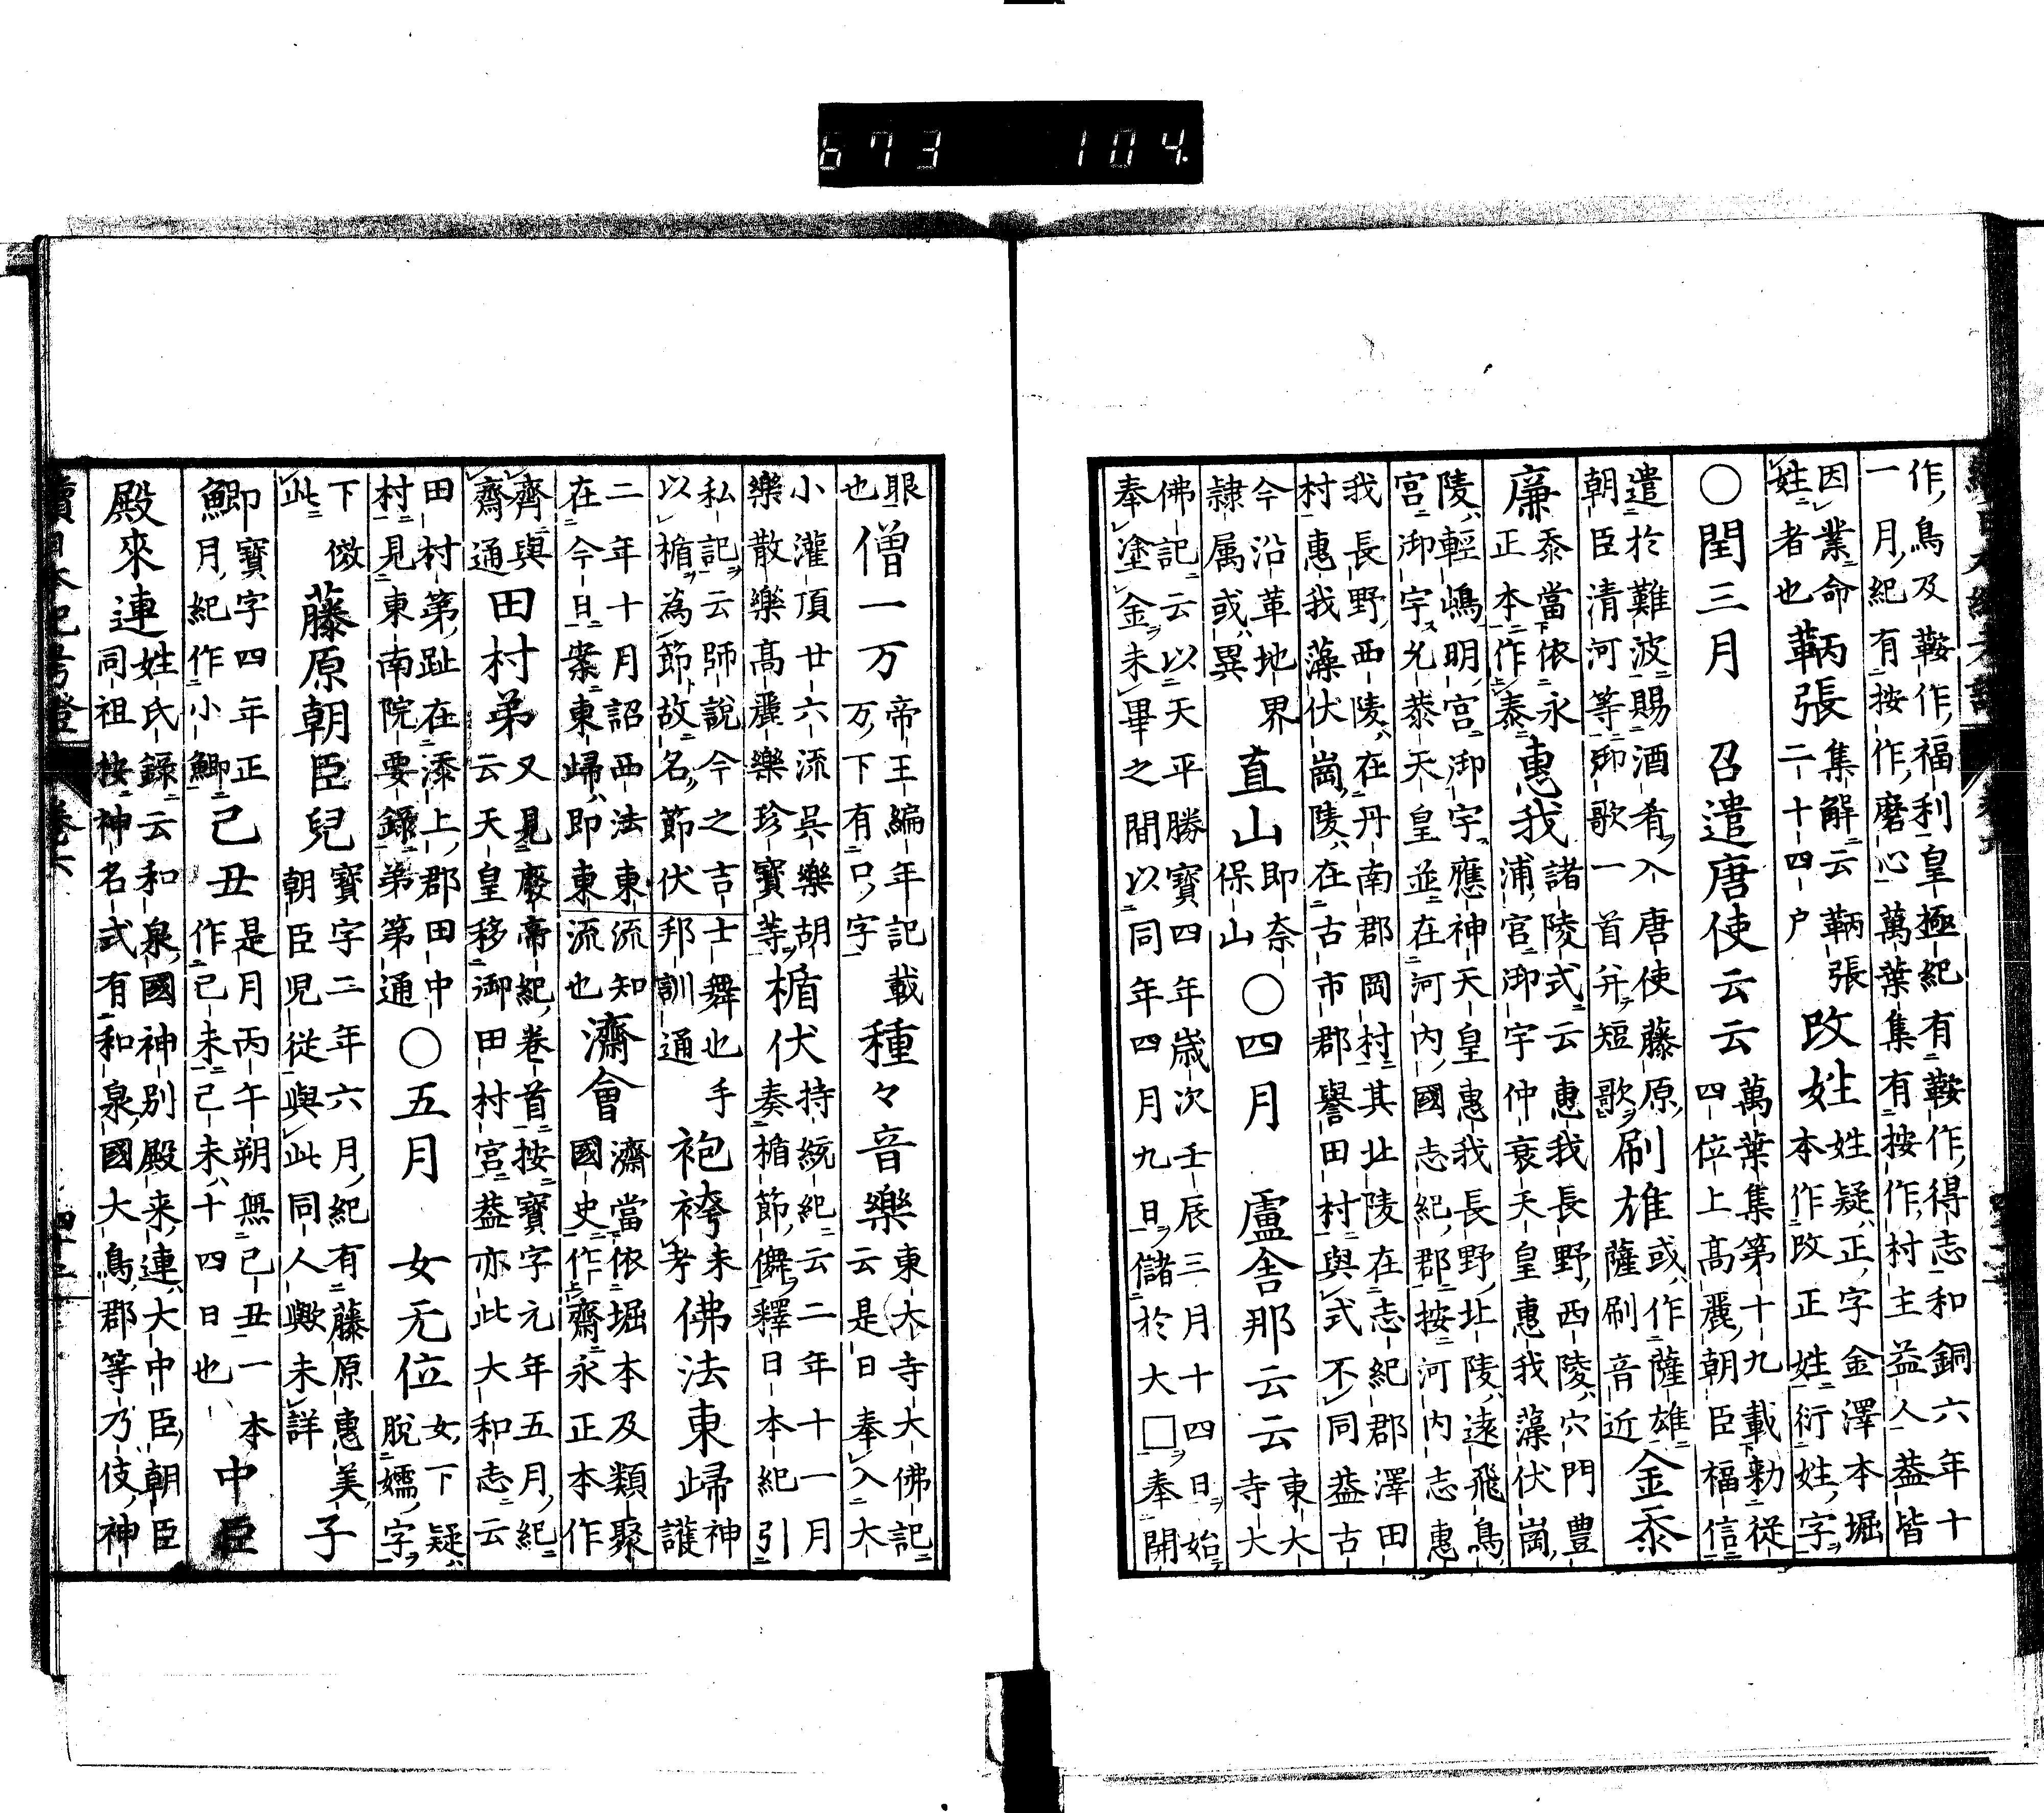 673 104.
作鳥及鞍作福利皇極紀有鞍作得志和銅六年十
一月紀有按作磨心萬葉集有按作村主益人益皆
因業命
姓者也
鞆張
集解云鞆張
二十四戸
改姓
姓疑正字金澤本堀
本作改正姓衍姓字
○閏三月 召遣唐使云云
萬葉集第十九載勅從
四位上高麗朝臣福信
遣於難波賜酒肴入唐使藤原
朝臣清河等御歌一首并短歌
刷雄
或作薩雄
薩刷音近
金泰
廉
泰當依永
正本作泰
惠我
諸陵式云惠我長野西陵穴門豊
浦宮御宇仲哀天皇惠我藻伏崗
陵輕嶋明宮御宇應神天皇惠我長野北陵遠飛鳥
宮御宇允恭天皇並在河內國志紀郡按河內志惠
我長野西陵在丹南郡岡村其北陵在志紀郡澤田
村惠我藻伏崗陵在古市郡譽田村與式不同益古
今沿革地界
隷属或異
直山
即奈
保山
○四月 盧舍那云云
東大
寺大
佛記云以天平勝寶四年歳次壬辰三月十四日始
奉塗金未畢之間以同年四月九日儲於大□奉開
眼
也
僧一万
帝王編年記載
万下有口字
種々音樂
東大寺大佛記
云是日奉入大
小灌頂廿六流呉樂胡
樂散樂高麗樂珍寶等
楯伏
持統紀云二年十一月
奏楯節儛釋日本紀引
私記云師說今之吉士舞也手
以楯為節故名節伏邦訓通
袍袴
未
考
佛法東歸
神
護
二年十月詔西法東流知
在今日案東歸即東流也
濟會
濟當依堀本及類聚
國史作齋永正本作
齊與
齋通
田村第
又見廢帝紀卷首按寶字元年五月紀
云天皇移御田村宮益亦此大和志云
田村第趾在添上郡田中
村見東南院要録第第通
○五月 女无位
女下疑
脫嬬字
下倣
此
藤原朝臣兒
寶字二年六月紀有藤原惠美
朝臣児從與此同人歟未詳
子
鯽
寶字四年正
月紀作小鯽
己丑
是月丙午朔無己丑一本
作己未己未十四日也
中臣
殿來連
姓氏録云和泉國神別殿来連大中臣朝臣
同祖按神名式有和泉國大鳥郡等乃伎神
續日本紀考證 卷六